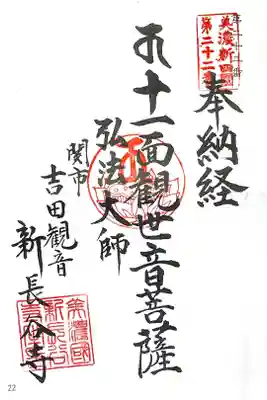 美濃新四国
第二十二番
奉納経
十一面觀世音菩薩
弘法大師
関市
吉田観音
新長谷寺
美濃國
新長谷
22